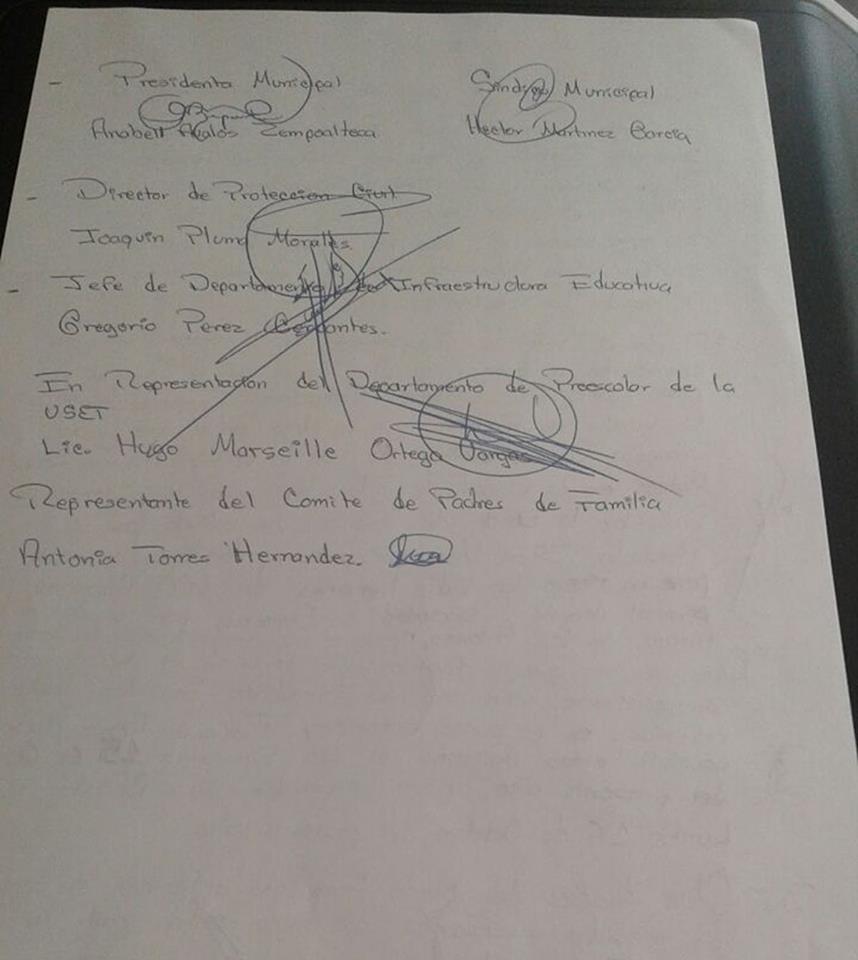 - Presidenta Municipal
Sindico Municipal
Anabell Avalos Zempoalteca
Hector Martinez Garcia
- Director de Proteccion Civil
Joaquin Pluma Morales.
- Jefe de Departamento de Infraestructura Educativa
Gregorio Perez Cervantes.
En Representacion del Departamento de Preescolar de la
USET
Lic. Hugo Marseille Ortega Vargas
Representante del Comite de Padres de Familia
Antonia Torres Hernandez.